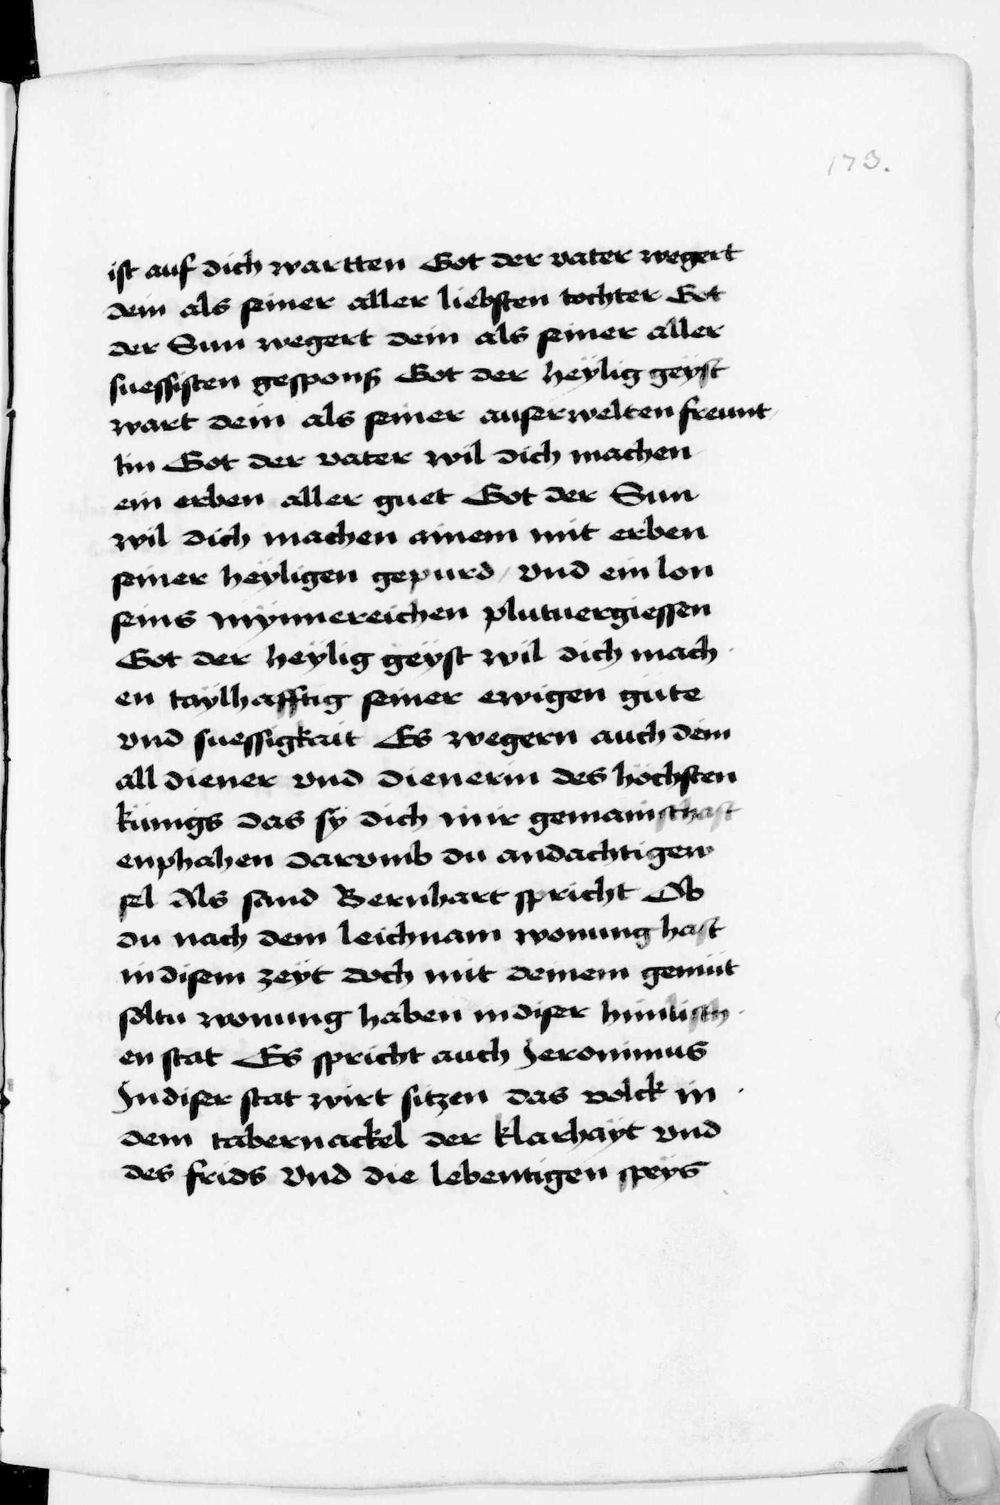 173.
ist auf dich wartten Got der vater wegert
dein als seiner aller liebsten tochter Got
der Sun wegert dein als seiner aller
suessisten gesponß Got der heÿlig geÿst
wart dein als seiner auserwelten freunt
lin Got der vater wil dich machen
ein erben aller guet Got der Sun
wil dich machen ainem mit erben
seiner heÿligen gepurd / vnd ein lon
seins mÿnnereichen plutuergiessen
Got der heÿlig geÿst wil dich mach
en taÿlhafftig seiner ewigen güte
vnd suessigkait Es wegern auch dein
all diener vnd dienerin des höchsten
künigs das sÿ dich in ir gemainschaft
enphahen darvmb du andachtigew
sel Als sand Bernhart spricht Ob
du nach dem leichnam wonung hast
in disem zeÿt doch mit deinem gemüt
soltu wonung haben in diser himlisch
en stat Es spricht auch Jeronimus
In diser stat wirt sitzen das volck in
dem tabernackel der klarhaÿt vnd
des frids Vnd die lebentigen speÿs